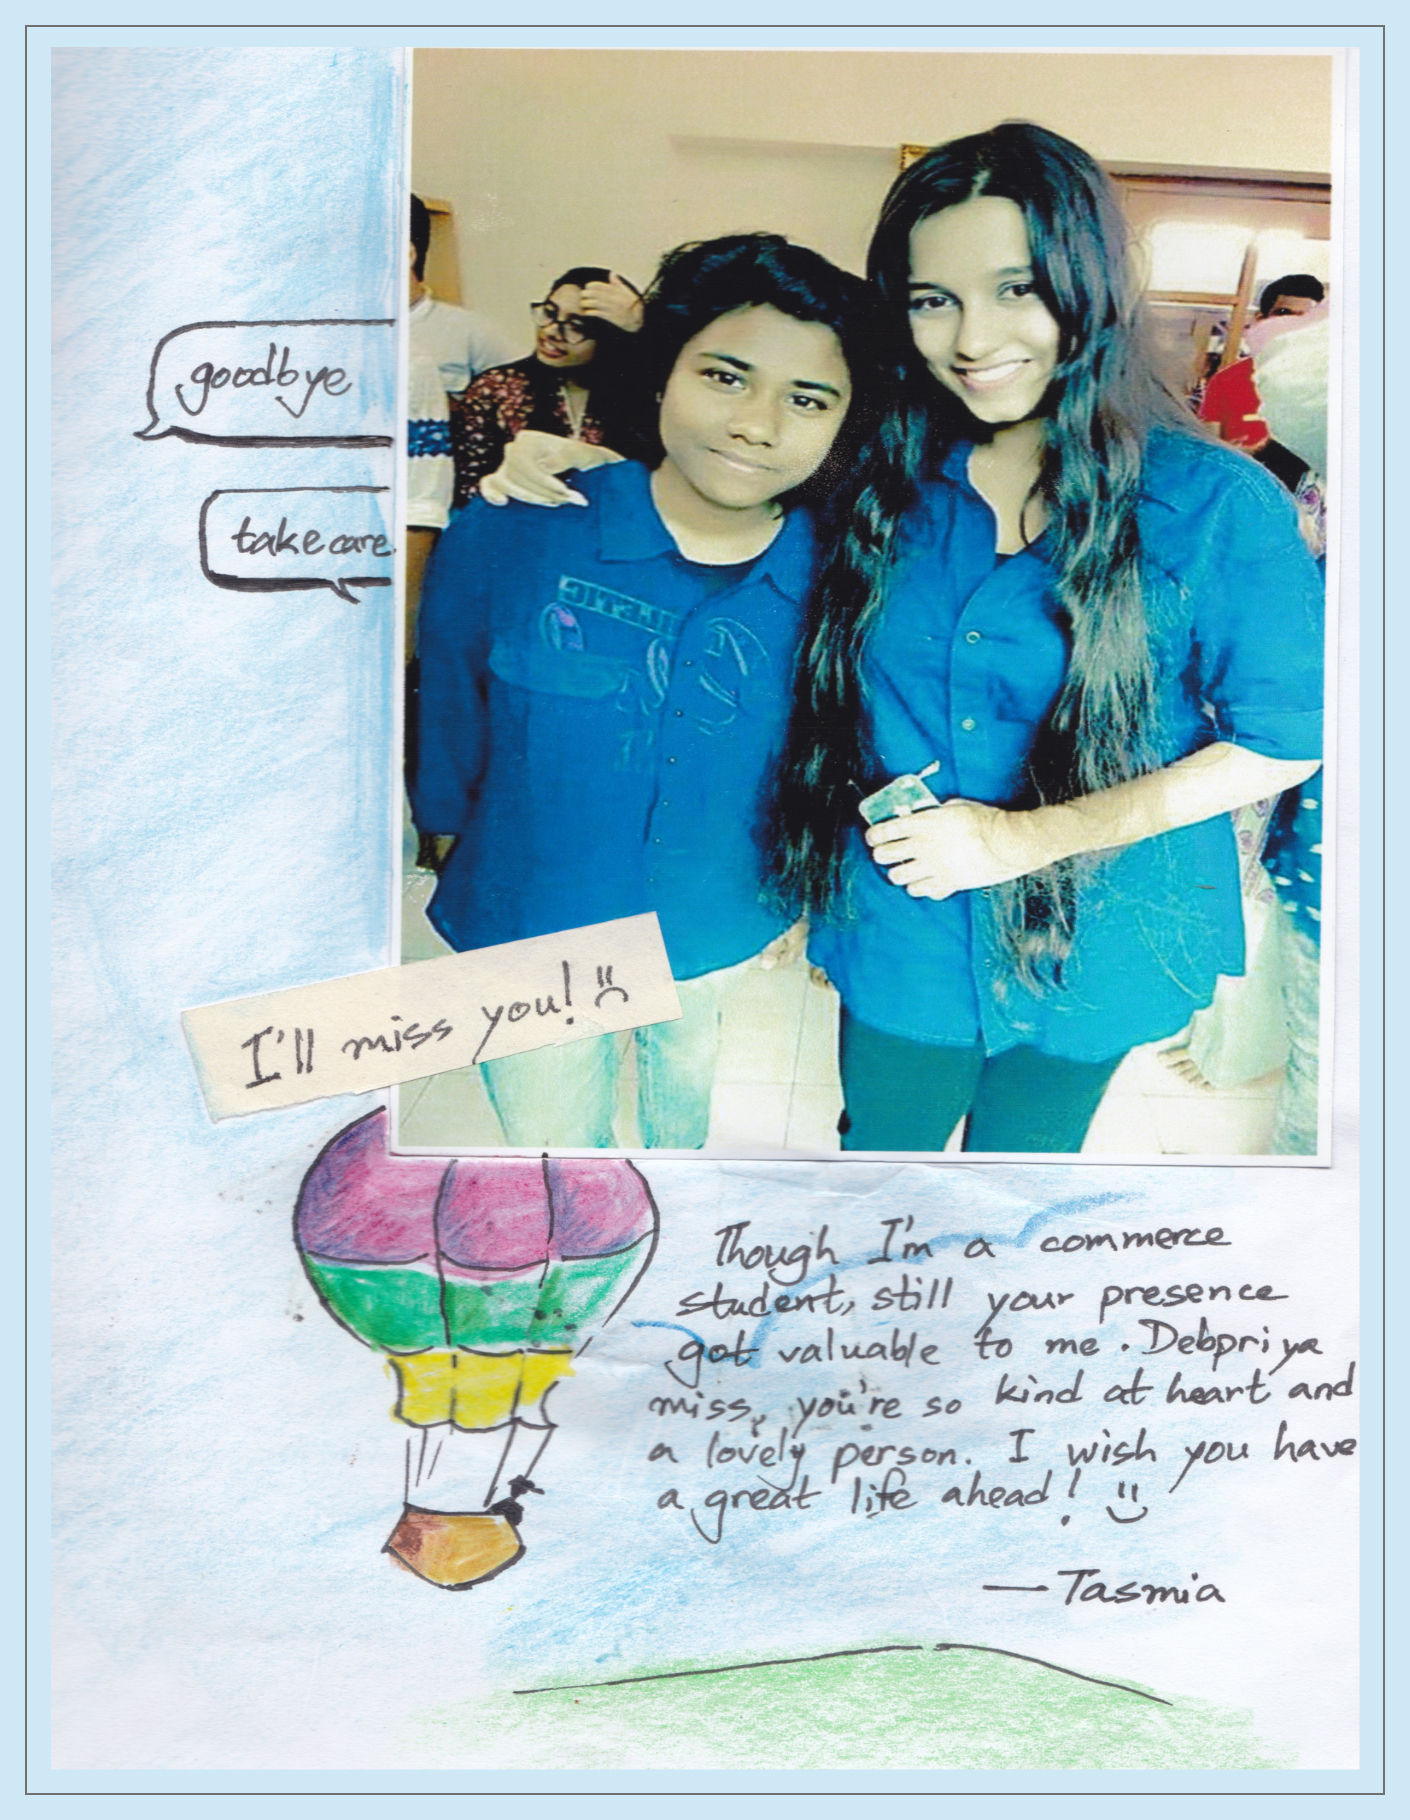 goodbye
take care.
I'll miss you!
Though I'm a commerce
student, still your presence
got valuable to me. Debpriya
miss, you're so kind at heart and
a lovely person. I wish you have
a great life ahead!
— Tasmia